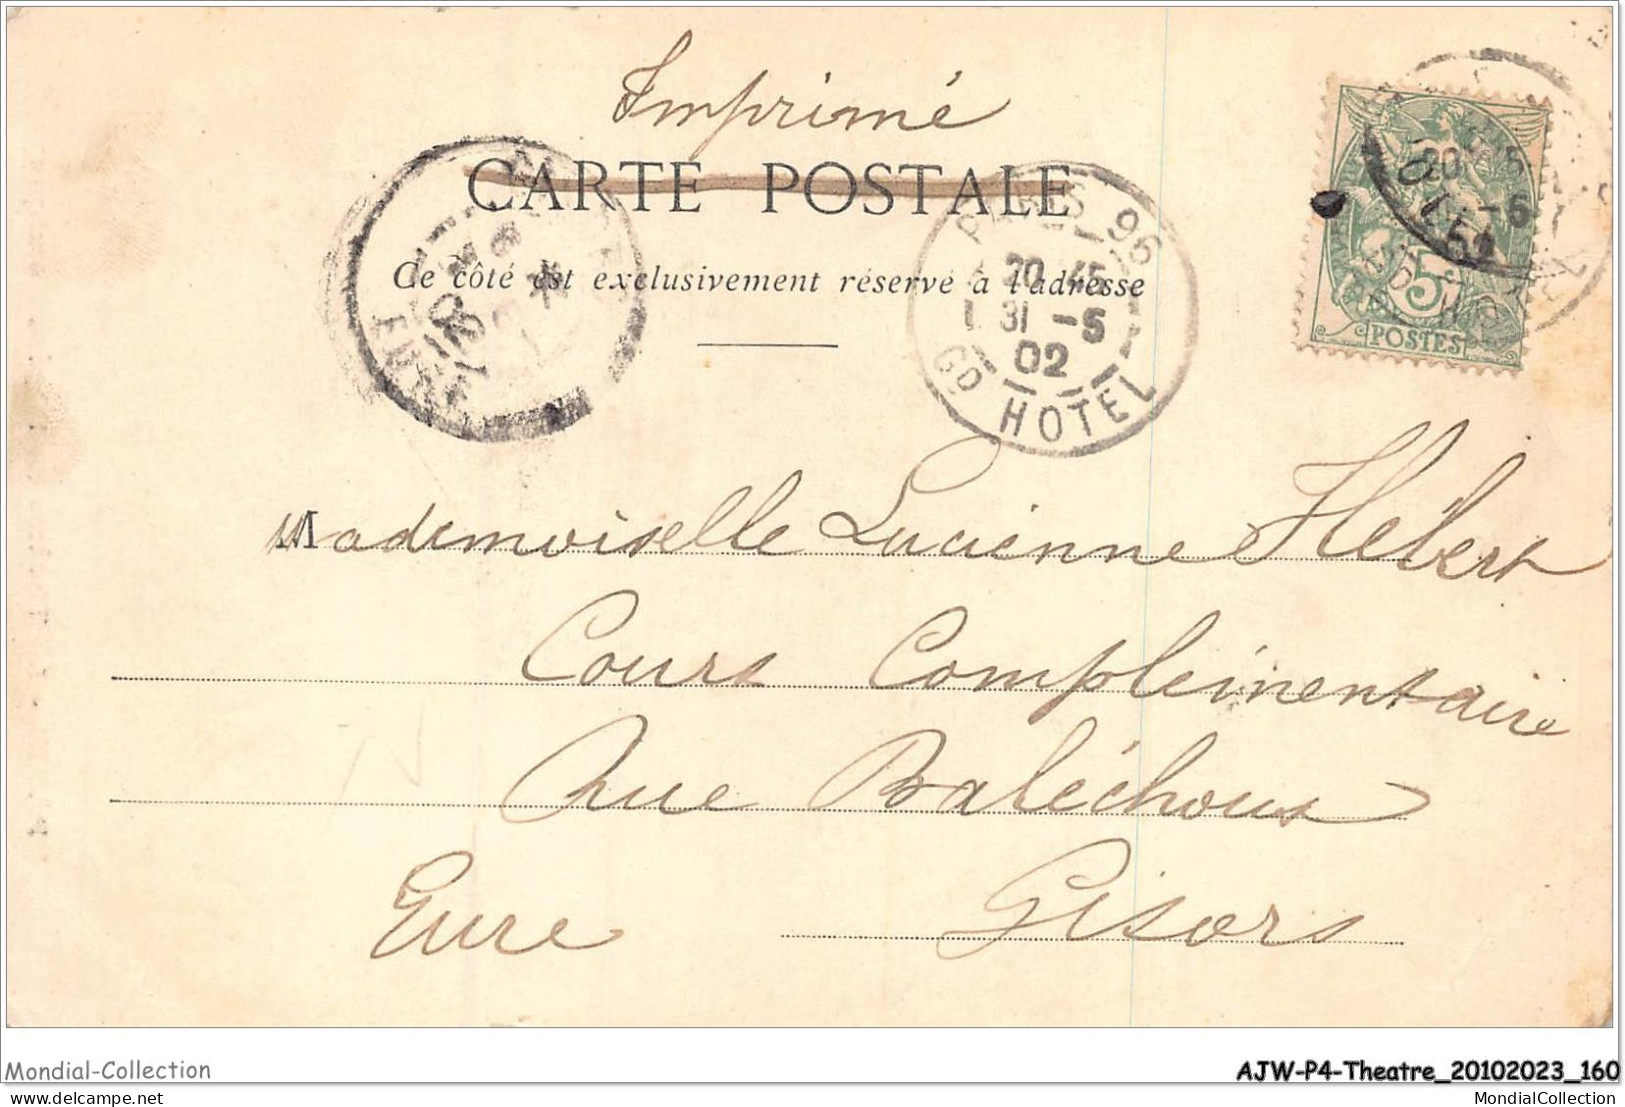 Imprimé
CARTE POSTALE
Ce côté est exclusivement réservé à l'adresse
PARIS_96
20 45
31 -5
02
GD HOTEL
5
POSTES
Mademoiselle Lucienne Hébert
Cours Complémentaire
Rue Baléchoux
Eure Gisors
Mondial-Collection
AJW-P4-Theatre_20102023_160
delcampe.net
MondialCollection